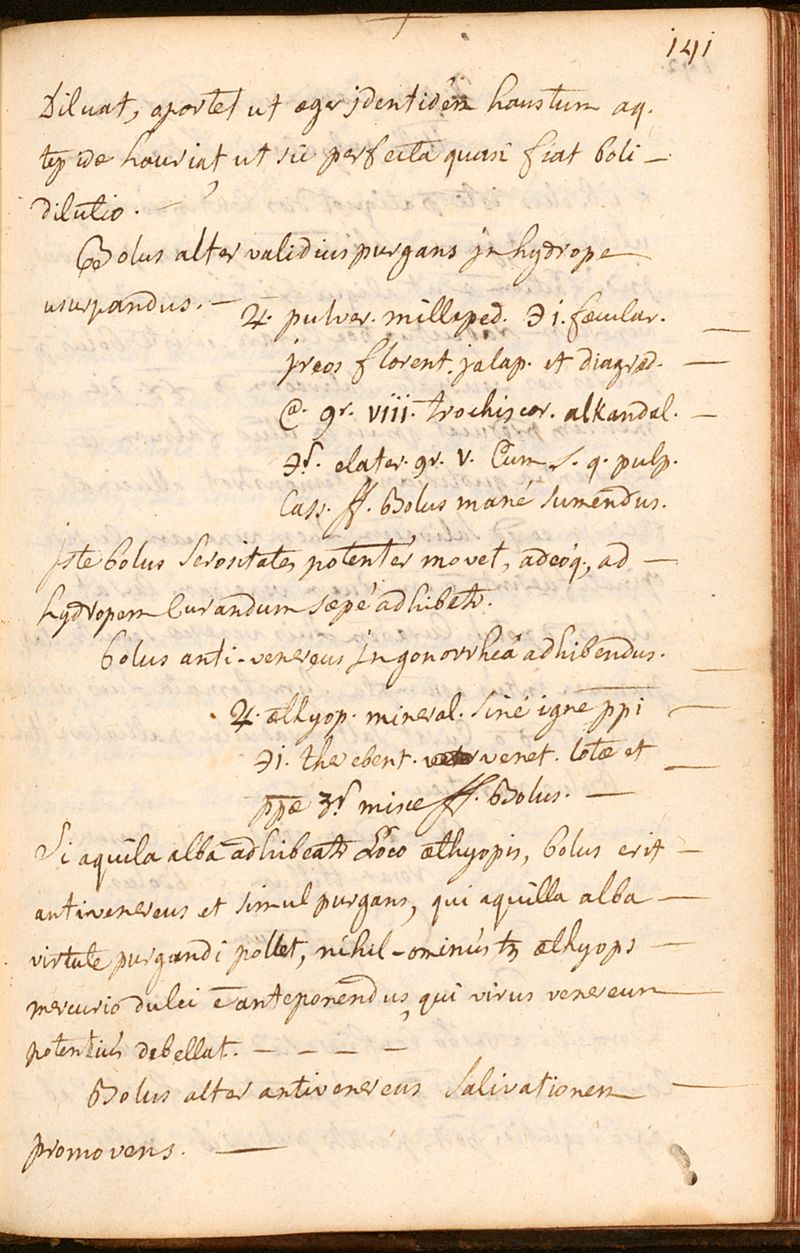 141
Diluat, oportet ut æger jdentidém haustum aq.
tepidæ hauriat, ut sic perfecta quasi fiat boli —
dilutio. —
Bolus alter validius purgans jn hydrope
usurpandus. —
♃. pulver. milleped. ℈i. fœcular. —
jreos florent. jalap. et diagred. —
@. gr. viii. trochiscor. alkandal. —
℈ſ. elater. gr. V. Cum S. q. pulp.
Cass. ff. Bolus mané Sumendus.
jste bolus Serositates potentér movet, adeóq;, ad —
hydropem Curandum sæpé adhibetr.
bolus anti-venereus jn gonorrheâ adhibendus. —
♃. æthyop. mineral. Siné igne ppi —
℈i. therebent. venet. lotæ et —
ppæ ʒſ misce ff. Bolus. —
Si aquila alba adhibeatr Loco æthyopis, bolus erit —
antivenereus et simul purgans, qui aquilla alba —
virtute purgandi pollet, nihil-ominús tn æthyops —
mercurio dulci ē anteponendus, qui virus venereum —
potentiús debellat. — — — —
Bolus alter antivenereus Salivationem —
promovens. —